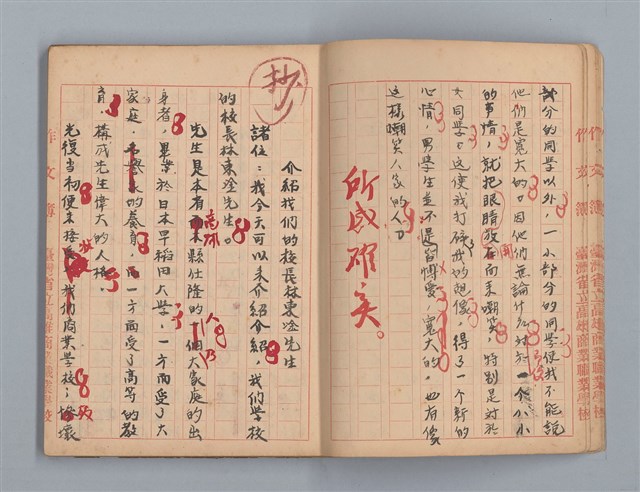 部分的同學以外，一小部分的同學使我不能說
他們是寬大的。因他們無論什么對於一個小小
的事情，就把眼睛放在而来嘲笑，特別是對於
女同學。這使我打破我的想像，得了一個新的
心情，男學生並不是皆博愛，寬大的，也有像
這樣嘲笑人家的人。
所感確实。
作文簿 臺灣省立高雄商業職業學校
抄
介紹我们的校長林東淦先生
諸位：我今天可以来介紹介紹，我们學校
的校長林東淦先生。
先生是本省高雄縣仕隆的一個大家庭的出
身者，畢業於日本早稻田大學，一方面受了大
家庭，的養育，而一方面受了高等的教
育，構成先生偉大的人格。
光復当初便来接我们商業學校；
作文簿 臺灣省立高雄商業職業學校